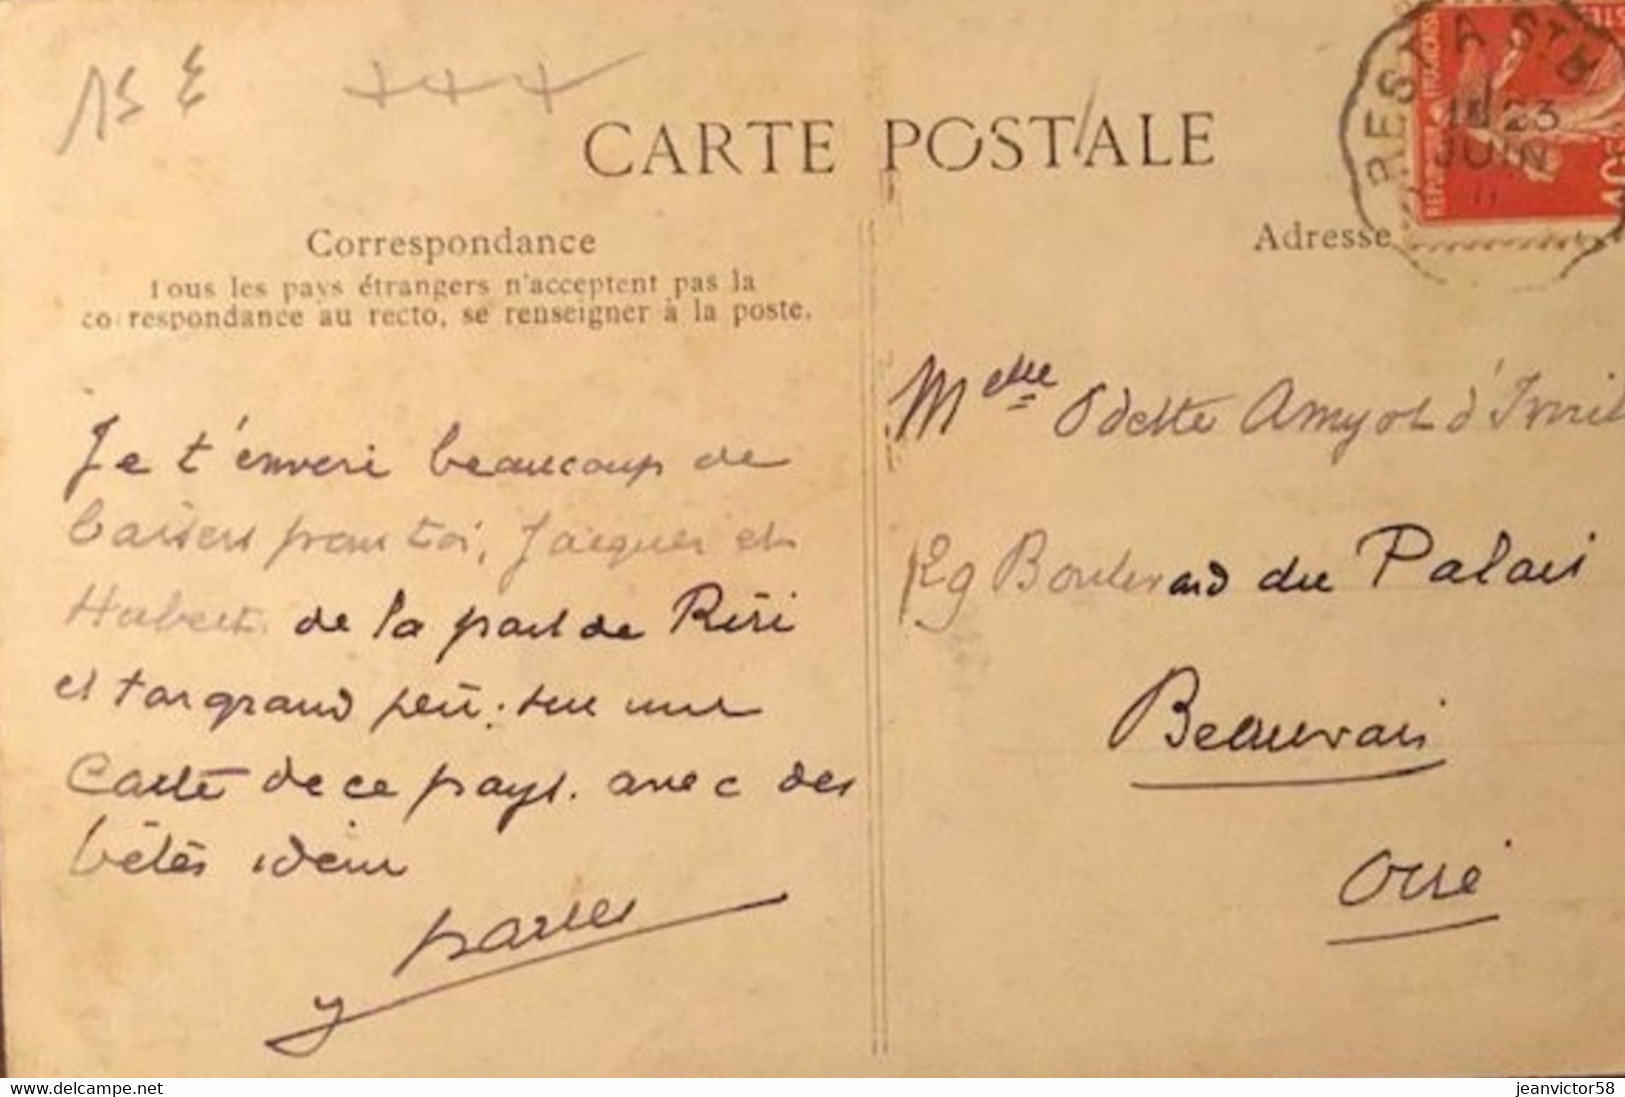 15 €
CARTE POSTALE
Correspondance
Tous les pays étrangers n'acceptent pas la
correspondance au recto, se renseigner à la poste.
Adresse
BREST A St B
23
JUIN
11
REPUBLIQUE FRANÇAISE
POSTES
10c
Je t'envoie beaucoup de
baisers pour toi, Jacques et
Hubert de la part de Riri
et ton grand père. sur une
Carte de ce pays. avec des
bêtes idem
Melle Odette Amyot d'Inville
29 Boulevard du Palais
Beauvais
Oise
delcampe.net
jeanvictor58